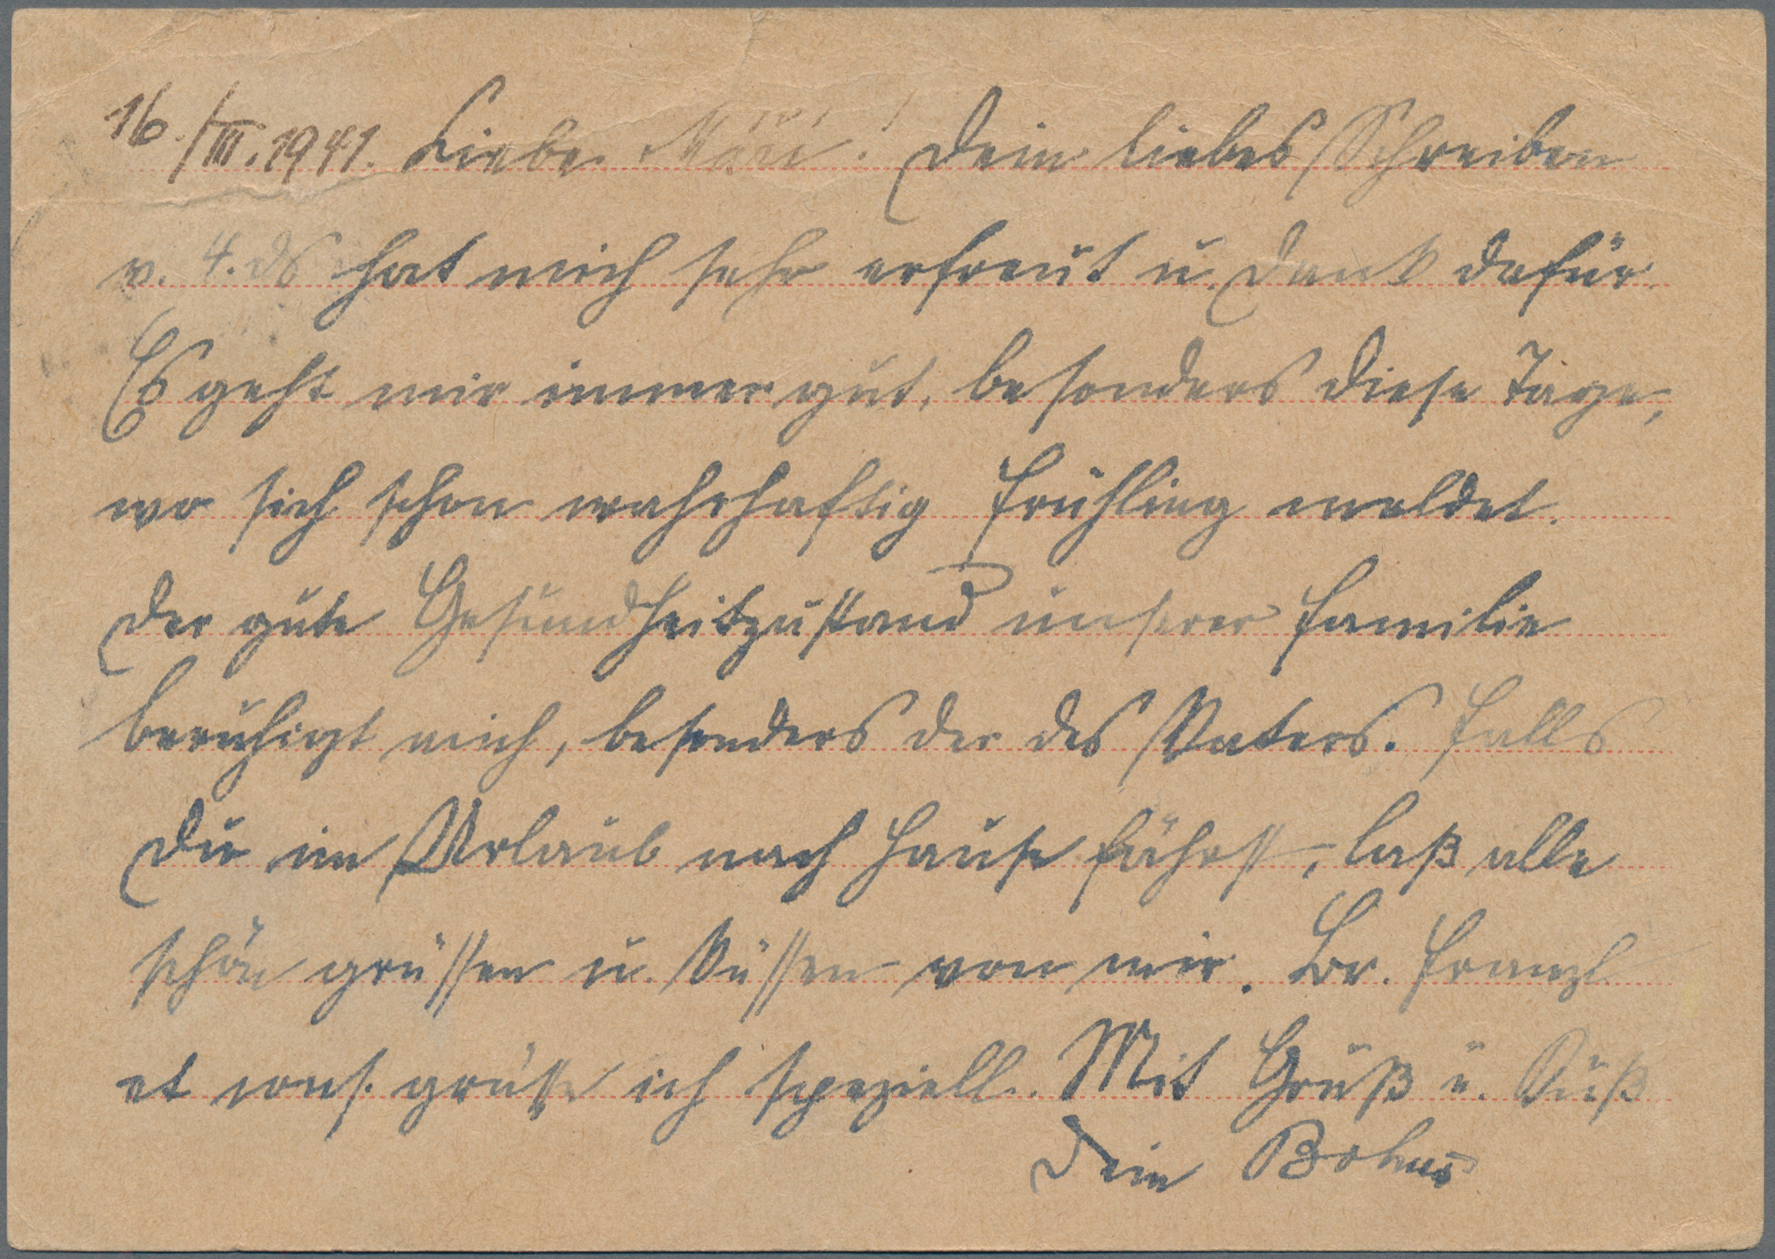 16./III.1941. Liebe Mári! Dein liebes Schreiben
v. 4. ds hat mich sehr erfreut u. Dank dafür.
Es geht mir immer gut, besonders diese Tage,
wo sich schon wahrhaftig Frühling meldet.
Der gute Gesundheitzustand unserer Familie
beruhigt mich, besonders der des Vaters. Falls
Du im Urlaub nach Hause fährst, laß alle
schön grüssen u. küssen von mir. Br. Franzl
et cons. grüße ich speziell. Mit Gruß u. Kuß
Dein